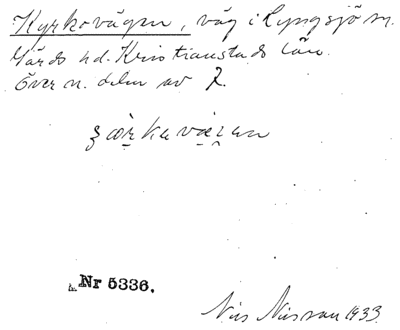 Kyrkovägen, väg i Lyngsjö sn.
Gärds hd. Kristianstads län.
Över n. delen av 7.
Nr 5336.
Nils Nilsson 1933